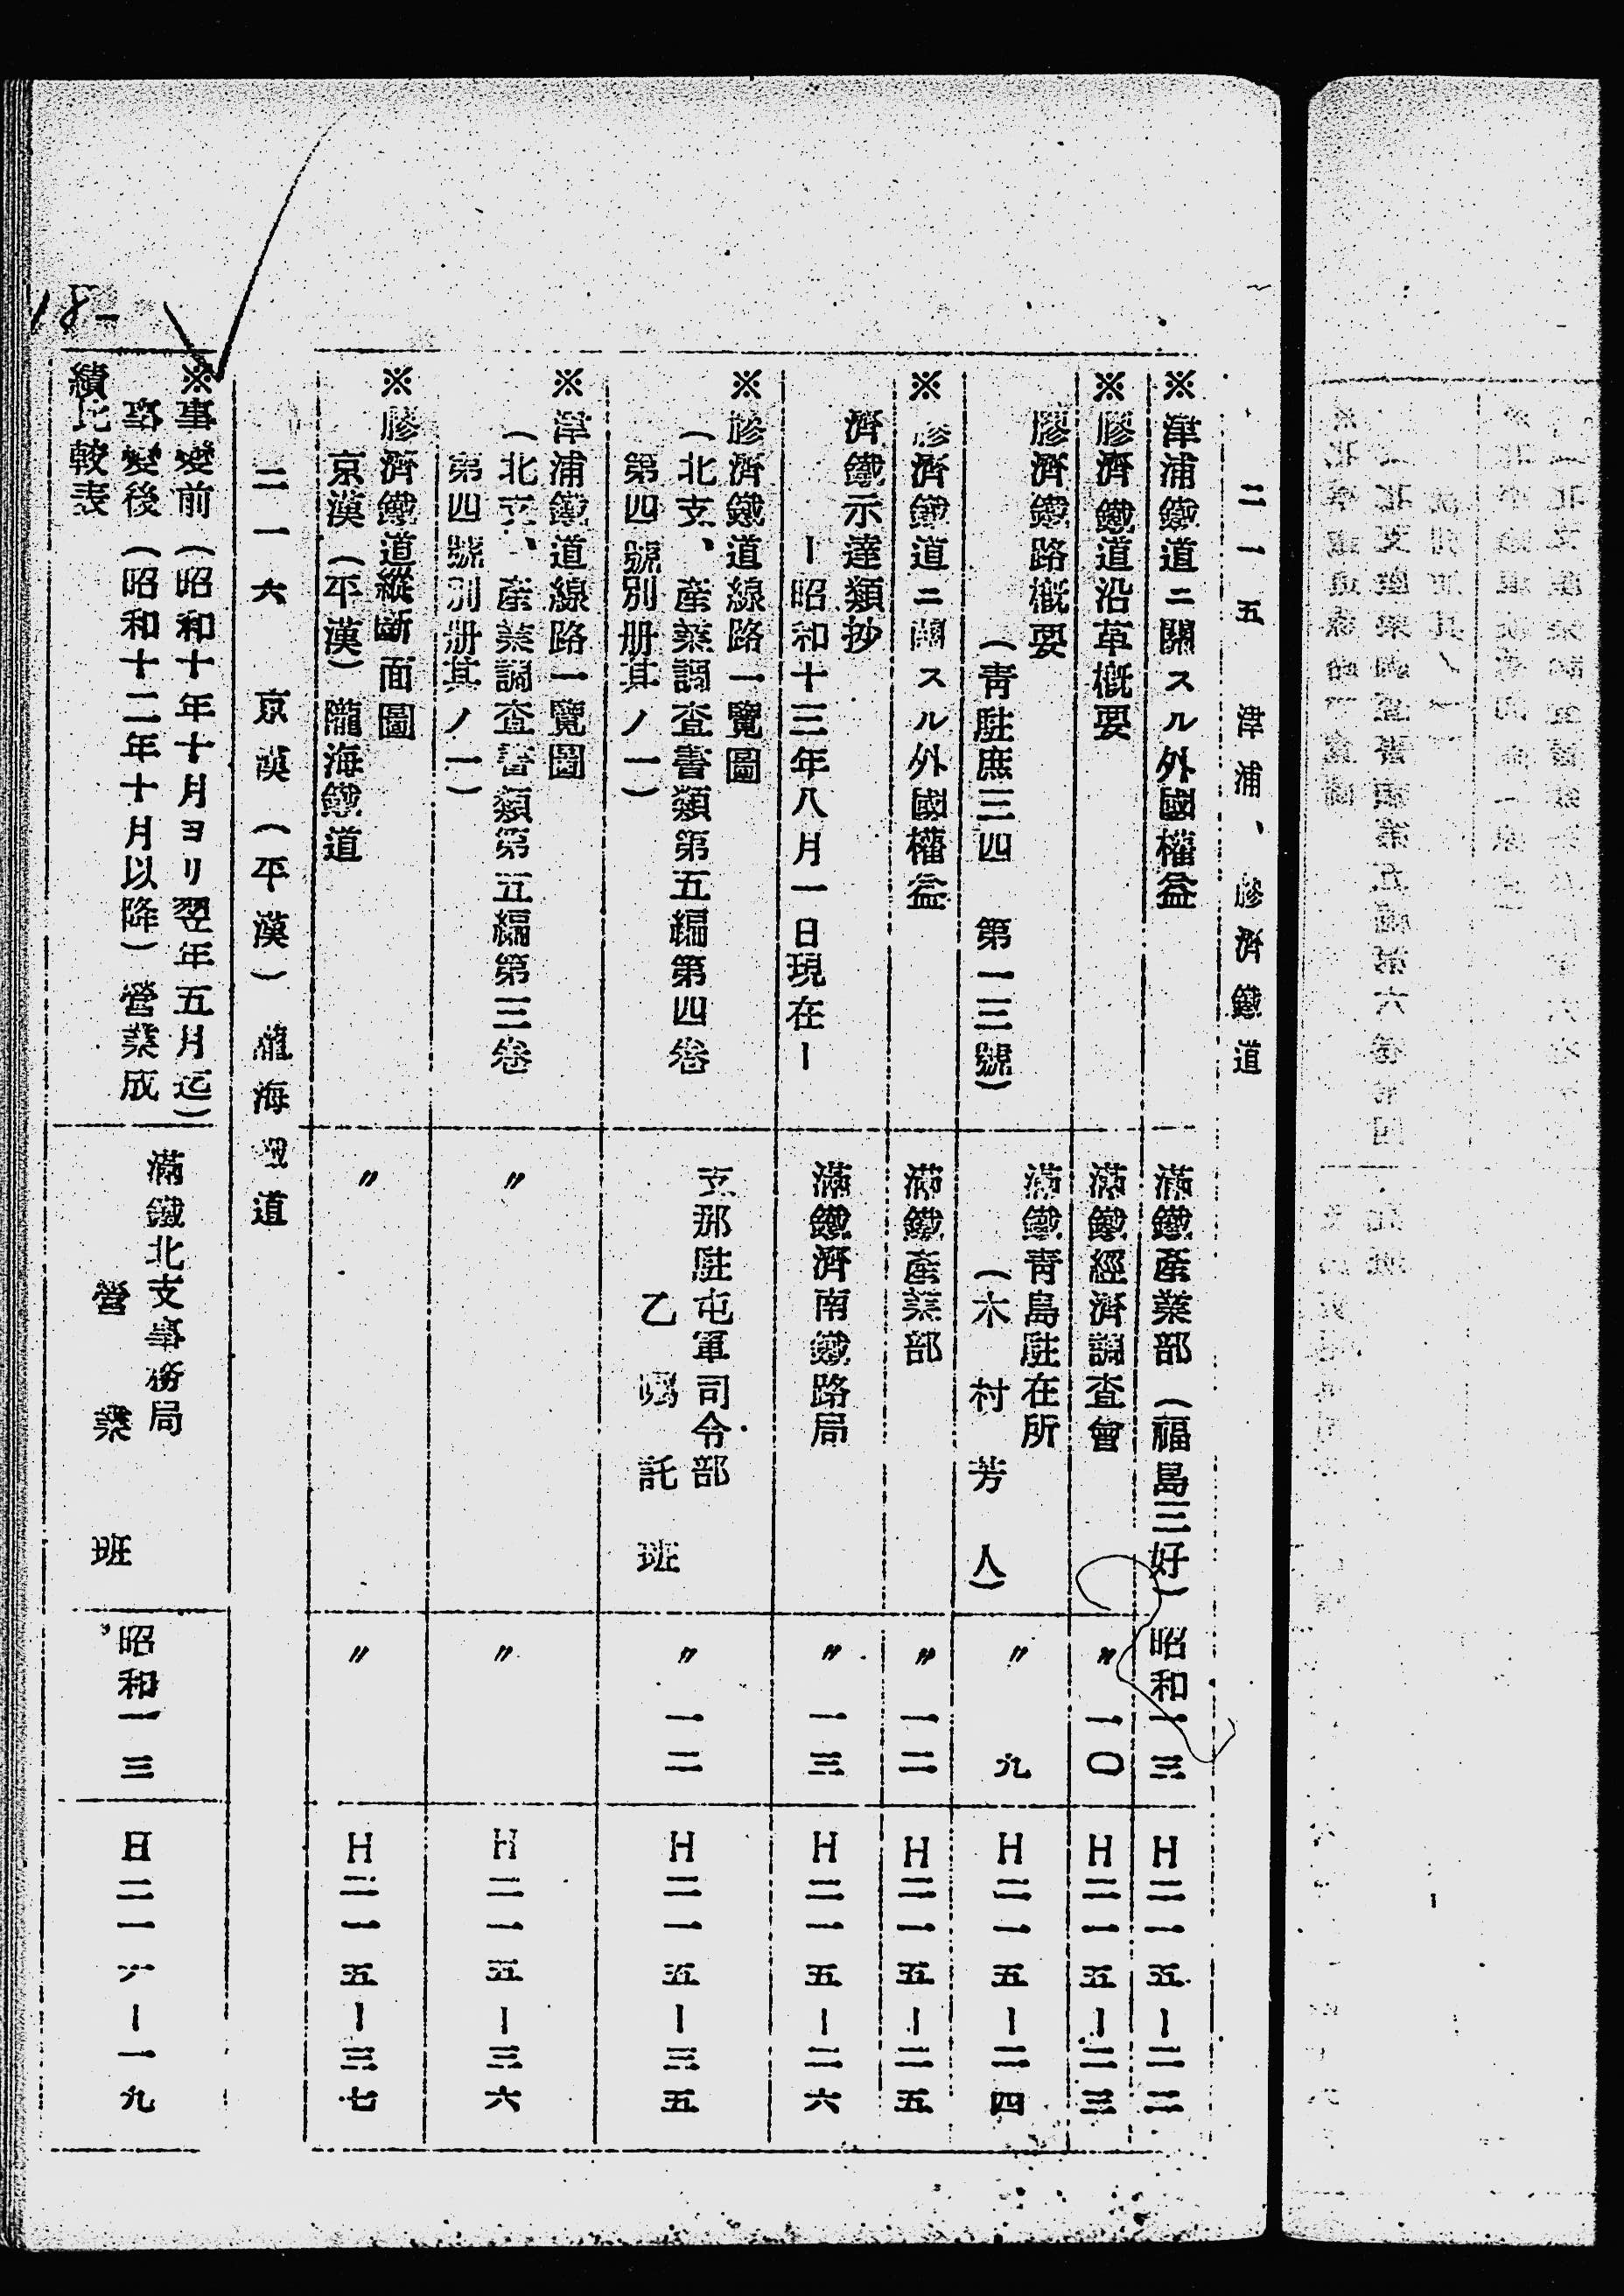 二一五　津浦、膠濟鐵道
※津浦鐵道ニ關スル外國權益
滿鐵產業部（福島三好）
昭和一三
H二一五－二二
※膠濟鐵道沿革概要
滿鐵經濟調査會
〃一〇
H二一五－二三
膠濟鐵路概要
（靑駐庶三四　第一三號）
滿鐵靑島駐在所
（木村芳人）
〃　九
H二一五－二四
※膠濟鐵道ニ關スル外國權益
滿鐵產業部
〃一二
H二一五－二五
濟鐵示達類抄
－昭和十三年八月一日現在－
滿鐵濟南鐵路局
〃一三
H二一五－二六
※膠濟鐵道線路一覽圖
（北支、產業調査書類第五編第四卷
第四號別册其ノ一）
支那駐屯軍司令部
乙囑託班
〃一二
H二一五－三五
※津浦鐵道線路一覽圖
（北支、產業調査書類第五編第三卷
第四號別册其ノ一）
〃
〃
H二一五－三六
※膠濟鐵道縱斷面圖
京漢（平漢）隴海鐵道
〃
〃
H二一五－三七
二一六　京漢（平漢）隴海　道
※事變前（昭和十年十月ヨリ翌年五月迄）
事變後（昭和十二年十月以降）營業成
績比較表
滿鐵北支事務局
營業班
昭和一三
H二一六－一九
18-